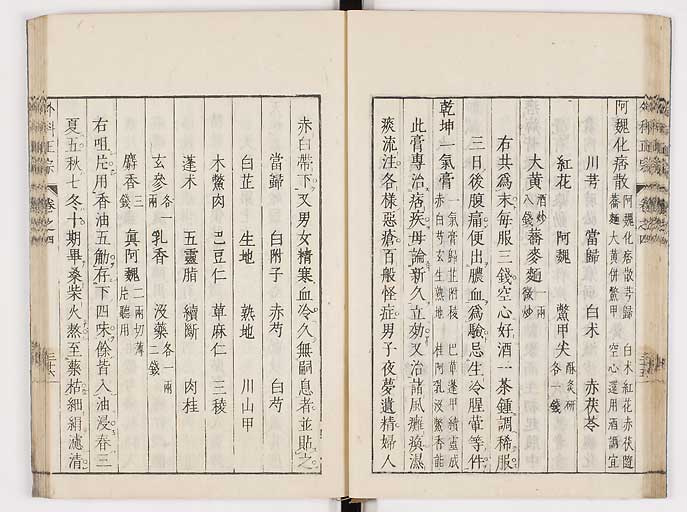 阿魏化痞散 阿魏化痞散芎歸 白术紅花赤茯隨
蕎麵大黄併鱉甲 空心運用酒調宜
川芎 當歸 白术 赤茯苓
紅花 阿魏 鱉甲尖 酥炙研各一錢
大黄 酒炒八錢 蕎麥麵 一兩微炒
右共爲末每服三錢空心好酒一茶鍾調稀服
三日後腹痛便出膿血爲驗忌生冷腥葷等件
乾坤一氣膏 一氣膏歸芷附稜 巴草蓬甲精靈成
赤白芍玄生熟地 桂阿乳没鱉香能
此膏專治痞疾毋論新久立効又治諸風癱瘓濕
痰流注各樣惡瘡百般怪症男子夜夢遺精婦人
赤白帶下又男女精寒血冷久無嗣息者並貼之
當歸 白附子 赤芍 白芍
白芷 生地 熟地 川山甲
木鱉肉 巴豆仁 萆麻仁 三稜
蓬术 五靈脂 續斷 肉桂
玄參 各一兩 乳香 没藥 各一兩二錢
麝香 三錢 真阿魏 二兩切薄片聽用
右咀片用香油五觔存下四味餘皆入油浸春三
夏五秋七冬十期畢桑柴火熬至藥枯細絹濾清
外科正宗 卷之四